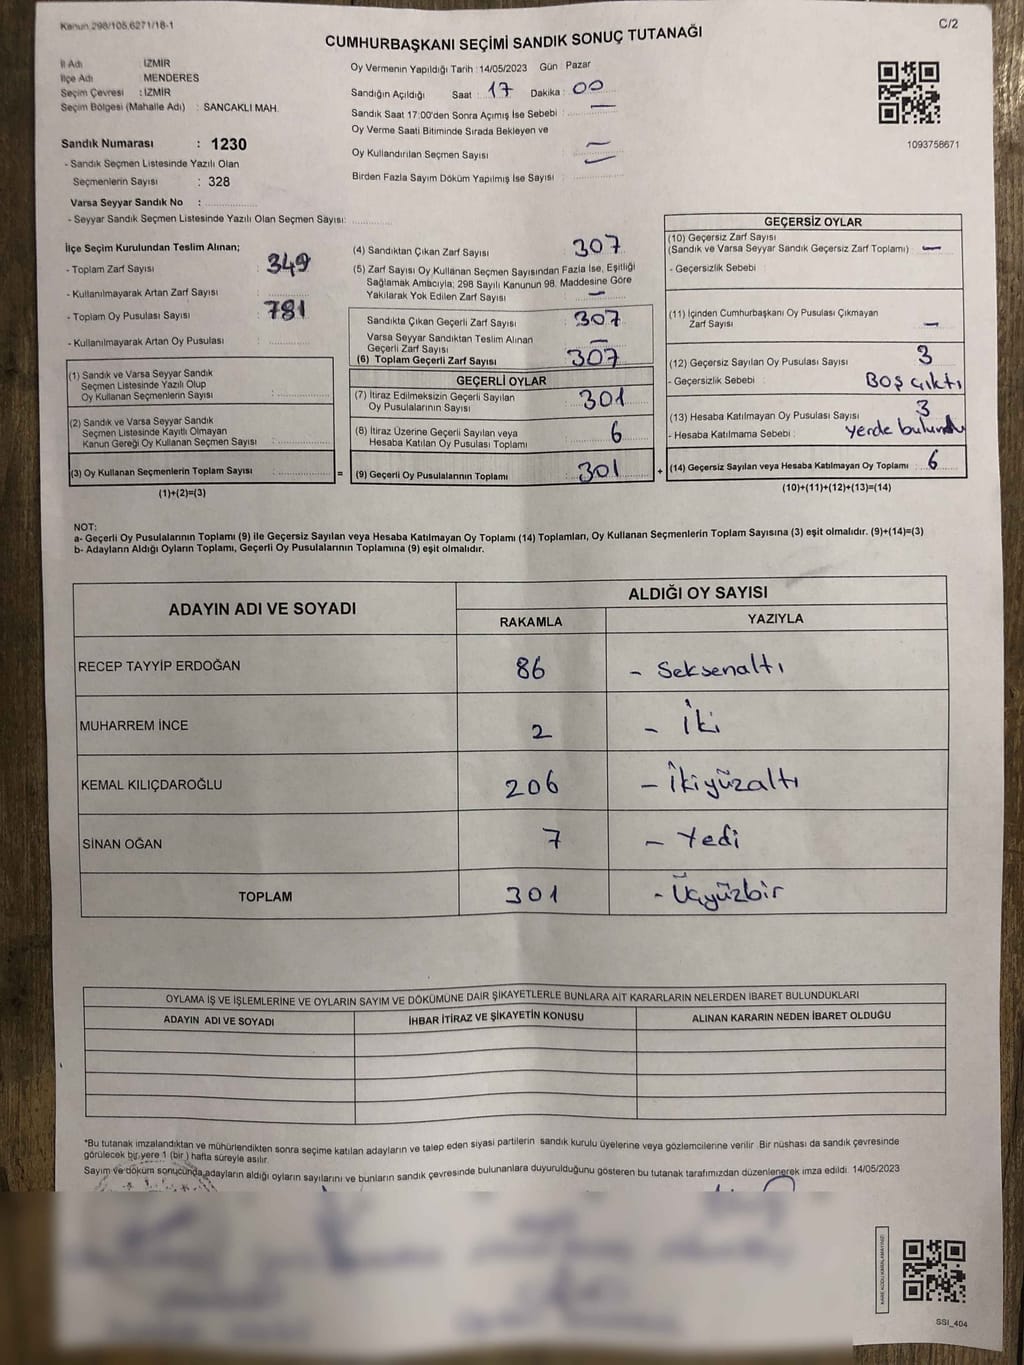 Kanun 298/105,6271/18-1
C/2
CUMHURBAŞKANI SEÇİMİ SANDIK SONUÇ TUTANAĞI
İl Adı İZMİR
İlçe Adı MENDERES
Seçim Çevresi : İZMİR
Seçim Bölgesi (Mahalle Adı) : SANCAKLI MAH.
Sandık Numarası : 1230
- Sandık Seçmen Listesinde Yazılı Olan
Seçmenlerin Sayısı : 328
Varsa Seyyar Sandık No :
- Seyyar Sandık Seçmen Listesinde Yazılı Olan Seçmen Sayısı:
Oy Vermenin Yapıldığı Tarih :14/05/2023 Gün Pazar
Sandığın Açıldığı Saat : 17 Dakika : 00
Sandık Saat 17:00'den Sonra Açımış İse Sebebi : —
Oy Verme Saati Bitiminde Sırada Bekleyen ve
Oy Kullandırılan Seçmen Sayısı : —
Birden Fazla Sayım Döküm Yapılmış İse Sayısı : —
1093758671
İlçe Seçim Kurulundan Teslim Alınan;
- Toplam Zarf Sayısı : 349
- Kullanılmayarak Artan Zarf Sayısı :
- Toplam Oy Pusulası Sayısı : 781
- Kullanılmayarak Artan Oy Pusulası :
(1) Sandık ve Varsa Seyyar Sandık
Seçmen Listesinde Yazılı Olup
Oy Kullanan Seçmenlerin Sayısı :
(2) Sandık ve Varsa Seyyar Sandık
Seçmen Listesinde Kayıtlı Olmayan
Kanun Gereği Oy Kullanan Seçmen Sayısı :
(3) Oy Kullanan Seçmenlerin Toplam Sayısı :
(1)+(2)=(3)
=
(4) Sandıktan Çıkan Zarf Sayısı : 307
(5) Zarf Sayısı Oy Kullanan Seçmen Sayısından Fazla İse, Eşitliği
Sağlamak Amacıyla; 298 Sayılı Kanunun 98. Maddesine Göre
Yakılarak Yok Edilen Zarf Sayısı : —
Sandıkta Çıkan Geçerli Zarf Sayısı : 307
Varsa Seyyar Sandıktan Teslim Alınan
Geçerli Zarf Sayısı : —
(6) Toplam Geçerli Zarf Sayısı : 307
GEÇERLİ OYLAR
(7) İtiraz Edilmeksizin Geçerli Sayılan
Oy Pusulalarının Sayısı : 301
(8) İtiraz Üzerine Geçerli Sayılan veya
Hesaba Katılan Oy Pusulası Toplamı : 6
(9) Geçerli Oy Pusulalarının Toplamı : 301
+
GEÇERSİZ OYLAR
(10) Geçersiz Zarf Sayısı
(Sandık ve Varsa Seyyar Sandık Geçersiz Zarf Toplamı) : —
- Geçersizlik Sebebi :
(11) İçinden Cumhurbaşkanı Oy Pusulası Çıkmayan
Zarf Sayısı : —
(12) Geçersiz Sayılan Oy Pusulası Sayısı : 3
- Geçersizlik Sebebi : Boş çıktı
(13) Hesaba Katılmayan Oy Pusulası Sayısı : 3
- Hesaba Katılmama Sebebi : yerde bulundu
(14) Geçersiz Sayılan veya Hesaba Katılmayan Oy Toplamı : 6
(10)+(11)+(12)+(13)=(14)
NOT:
a- Geçerli Oy Pusulalarının Toplamı (9) ile Geçersiz Sayılan veya Hesaba Katılmayan Oy Toplamı (14) Toplamları, Oy Kullanan Seçmenlerin Toplam Sayısına (3) eşit olmalıdır. (9)+(14)=(3)
b- Adayların Aldığı Oyların Toplamı, Geçerli Oy Pusulalarının Toplamına (9) eşit olmalıdır.
ADAYIN ADI VE SOYADI
ALDIĞI OY SAYISI
RAKAMLA YAZIYLA
RECEP TAYYİP ERDOĞAN 86 - Seksenaltı
MUHARREM İNCE 2 - İki
KEMAL KILIÇDAROĞLU 206 - İkiyüzaltı
SİNAN OĞAN 7 - Yedi
TOPLAM 301 - Üçyüzbir
OYLAMA İŞ VE İŞLEMLERİNE VE OYLARIN SAYIM VE DÖKÜMÜNE DAİR ŞİKAYETLERLE BUNLARA AİT KARARLARIN NELERDEN İBARET BULUNDUKLARI
ADAYIN ADI VE SOYADI İHBAR İTİRAZ VE ŞİKAYETİN KONUSU ALINAN KARARIN NEDEN İBARET OLDUĞU
*Bu tutanak imzalandıktan ve mühürlendikten sonra seçime katılan adayların ve talep eden siyasi partilerin sandık kurulu üyelerine veya gözlemcilerine verilir Bir nüshası da sandık çevresinde
görülecek bir yere 1 (bir) hafta süreyle asılır.
Sayım ve döküm sonucunda adayların aldığı oyların sayılarını ve bunların sandık çevresinde bulunanlara duyurulduğunu gösteren bu tutanak tarafımızdan düzenlenerek imza edildi. 14/05/2023
SSI_404